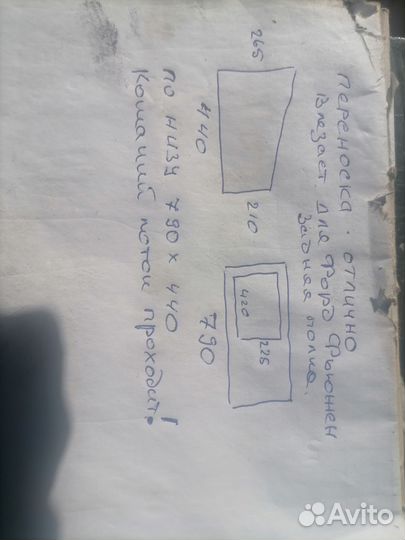 Переноска. отлично
Влезает. Для Форд Фьюжен
Задняя полка.
265
440
210
420
225
790
По низу 790 х 440
Кошачий лоток проходит!
Avito